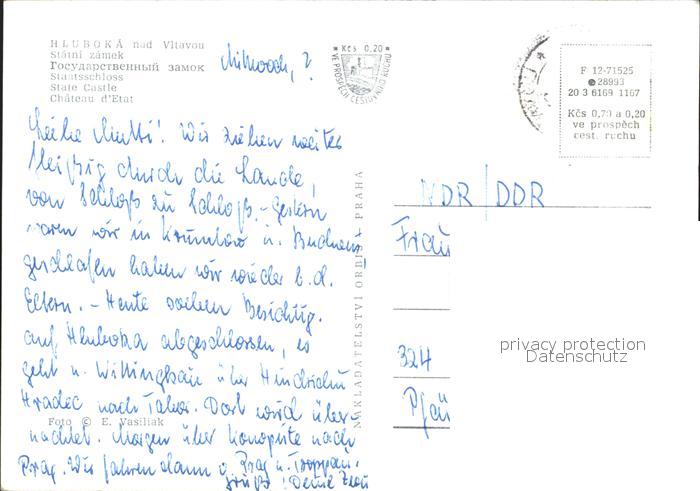 HLUBOKÁ nad Vltavou
Státní zámek
Государственный замок
Staatsschloss
State Castle
Château d'Etat
Mittwoch, ?
* Kčs 0,20 *
VE PROSPĚCH CESTOVNÍHO RUCHU
F 12-71525
28993
20 3 6169 1167
Kčs 0,70 a 0,20
ve prospěch
cest. ruchu
Liebe Mutti! Wir ziehen weiter
fleißig durch die Lande,
von Schloß zu Schloß. - Gestern
waren wir in Krumlov u. Budweis,
geschlafen haben wir wieder b. d.
Eltern. - Heute Besichtig.
auf Hluboka abgeschlossen, es
geht n. Wittingau über Hindrichu
Hradec nach Tabor. Dort wird über-
nachtet. Morgen über Konopište nach
Prag. Wir fahren dann v. Prag n. Troppau.
Gruß!
NAKLADATELSTVÍ ORBIS * PRAHA
Foto © E. Vasiliak
NDR/DDR
Frau
324
privacy protection
Datenschutz